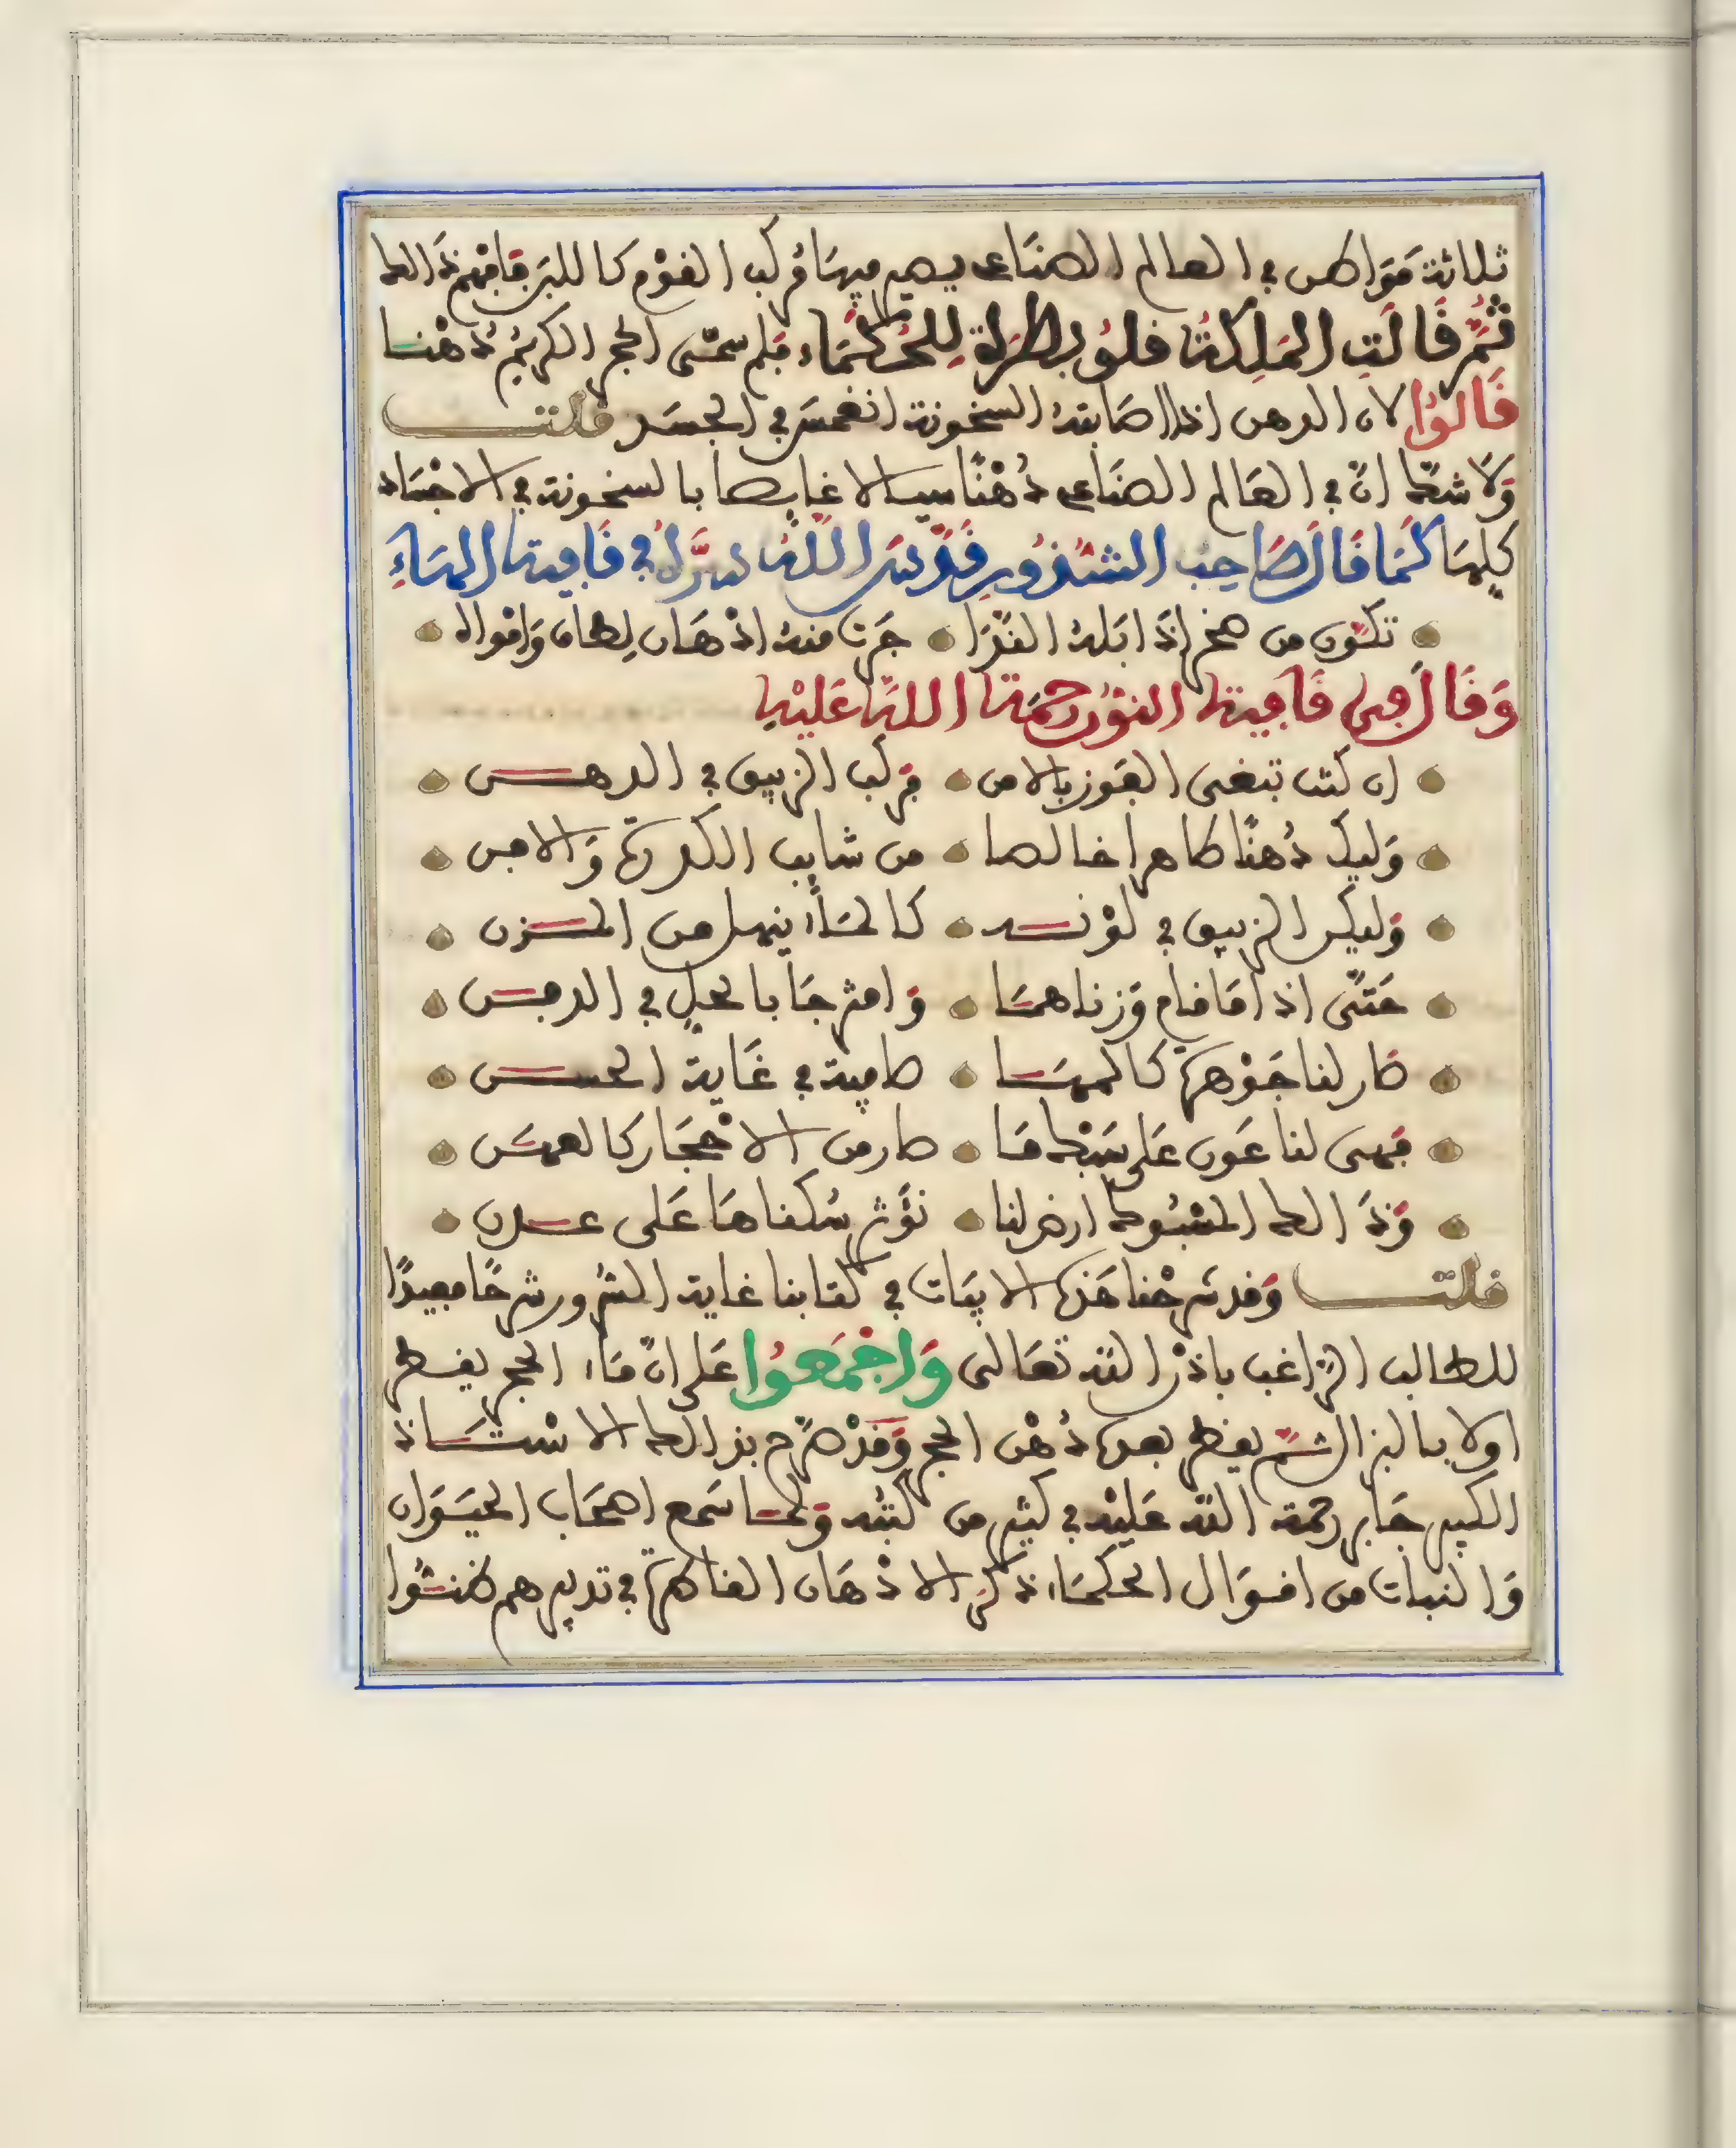 ثلاثة مَوَاطن في العالم الصنَاعي يصير فيهَا مُركب القوْم كاللبَن فَافْهَمْ ذَالك
ثُمَّ قَالَتِ المَلِكَة قلُوبطرَة لِلحُكَمَاء فَلِمَ سمّى الحجر الكريم دُهْنا
قَالُوا لان الدهن اذا اصَابته السخونة انغمسَ في الجسَد قلت
وَلَا شكّ انّ في العَالم الصنَاعي دُهْنًا سيالا غايصا بالسخونة في الاجْسَاد
كلِهَا كَمَا قَالَ صَاحِبُ الشذُورِ قَدَّسَ اللّهُ سِرَّهُ في قَافية الهَاءِ
تكوّن من صخر إذَا بَله النَّدَا جَرَت منه ادْهَان لِطَاف وَامْواه
وَقَالَ في قَافيَة النُون رحمَة اللهِ عَليْهِ
ان كنت تبغى الفَوز بالامن فركب الزيبق في الدهن
وَليك دُهنًا طاهرا خالصا من شايب الكدرة وَالافن
وَليكن الزيبق في لوْنه كالمَاء ينهل من المزن
حَتّى اذا مَا قام وَزناهمَا وَامتزجَا بالحل في الدفن
صَار لنا جَوْهرة كالمهَا صافية في غَاية الحسن
فَهى لنا عَون عَلى سَبْك مَا صار من الاحْجَار كالعهن
وَذَالك المسْبُوك ارض لنا نؤْثر سُكناهَا عَلى عدن
قلت وَقد شرحْنا هَذه الابيَات في كتابنا غاية السُرور شرحًا مفيدًا
للطالب الرّاغب باذن الله تعَالى وَاجْمَعُوا عَلى انّ مَاء الحجر يقطر
اولا باللين ثمّ يقطر بعده دُهْن الحجر وَقَدْ صَرّح بذالك الاسْتَاذ
الكبير جَابر رحمة الله عَليْه في كثير من كتبه وَلما سَمع اصحَاب الحيَوَان
وَالنبات من اقوَال الحكمَاء ذكر الادْهَان الظاهرة في تدبيرهم ظنّوا